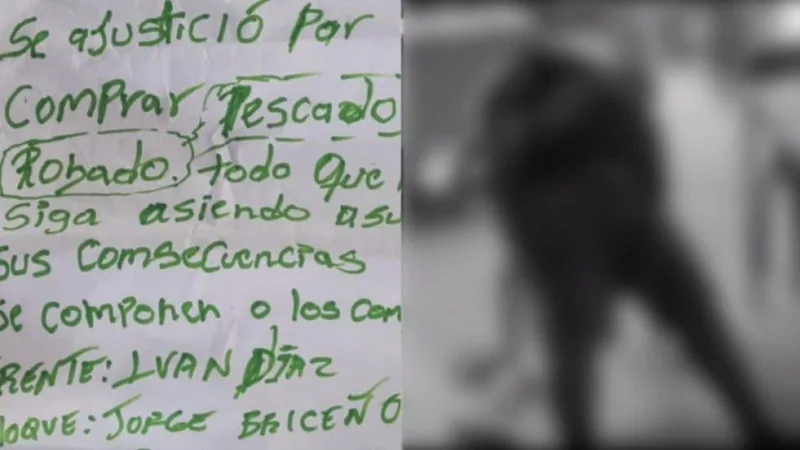 Se ajustició Por
Comprar Pescado
Robado. todo Que
Siga asiendo asu
Sus Comsecuencias
Se componen o los com
FRENTE: IVAN DíAZ
BLOQUE: JORGE BRICEÑO